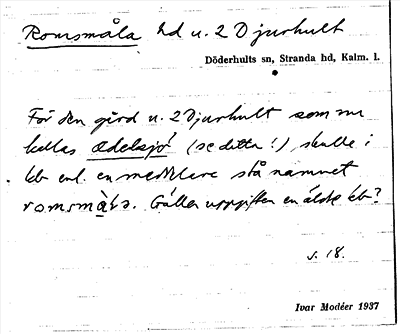 Romsmåla hd u. 2 Djurhult
Döderhults sn, Stranda hd, Kalm. l.
För den gård u. 2 Djurhult som nu
kallas ädelsjö (se detta!), skulle i
kb enl. en meddelare stå namnet
romsmåla. Gäller uppgiften en äldre kb?
s. 18.
Ivar Modéer 1937